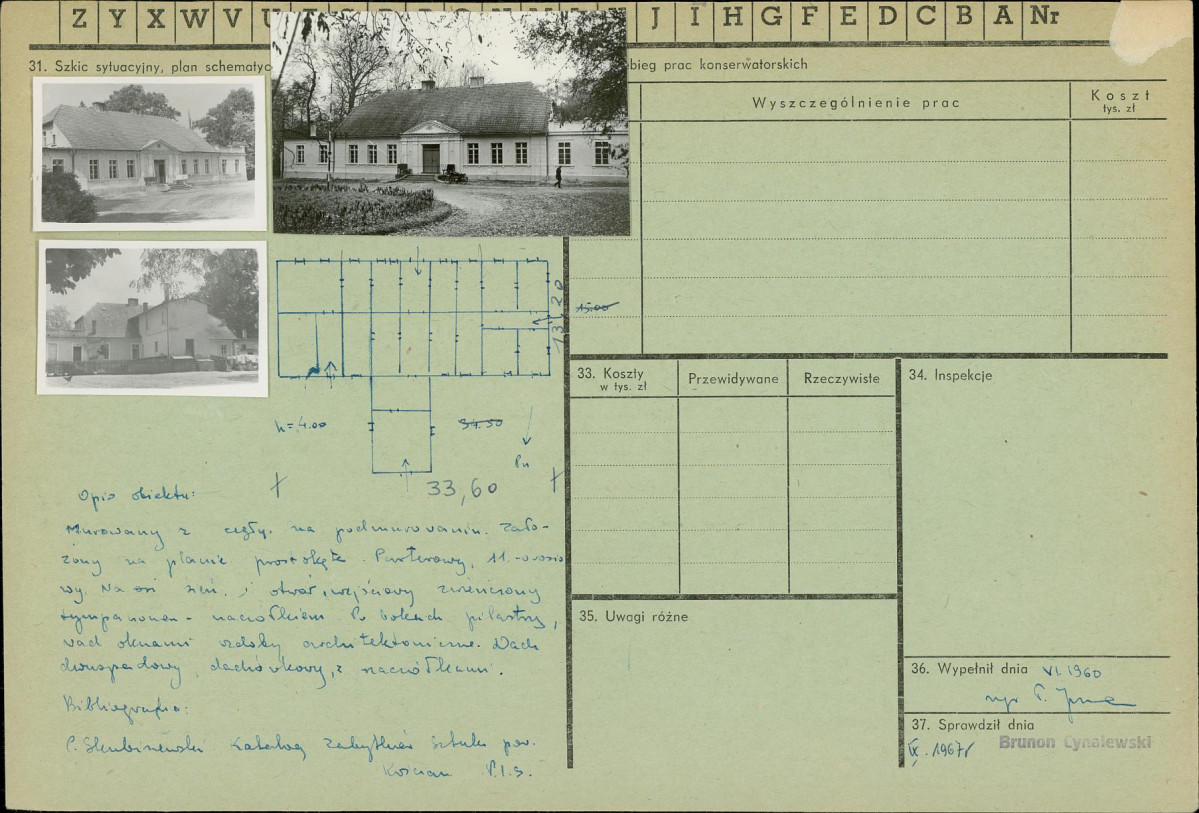 Z Y X W V U J I H G F E D C B A Nr
31. Szkic sytuacyjny, plan schematyc
bieg prac konserwatorskich
Wyszczególnienie prac
Koszt
tys. zł
13,20
15.00
h = 4.00
34.50
Pn
33,60
33. Koszty
w tys. zł
Przewidywane
Rzeczywiste
34. Inspekcje
35. Uwagi różne
Opis obiektu:
Murowany z cegły, na podmurowaniu. Zało-
żony na planie prostokąta. Parterowy, 11-osio
wy. Na osi sień i otwór wejściowy zwieńczony
tympanonem - naczółkiem. Po bokach pilastry,
nad oknami ozdoby architektoniczne. Dach
dwuspadowy, dachówkowy, z naczółkami.
Bibliografia:
Katalog Zabytków Sztuki pow.
Kościan P.I.S.
36. Wypełnił dnia VI.1960
mgr
37. Sprawdził dnia
IX.1967r
Brunon Cynalewski